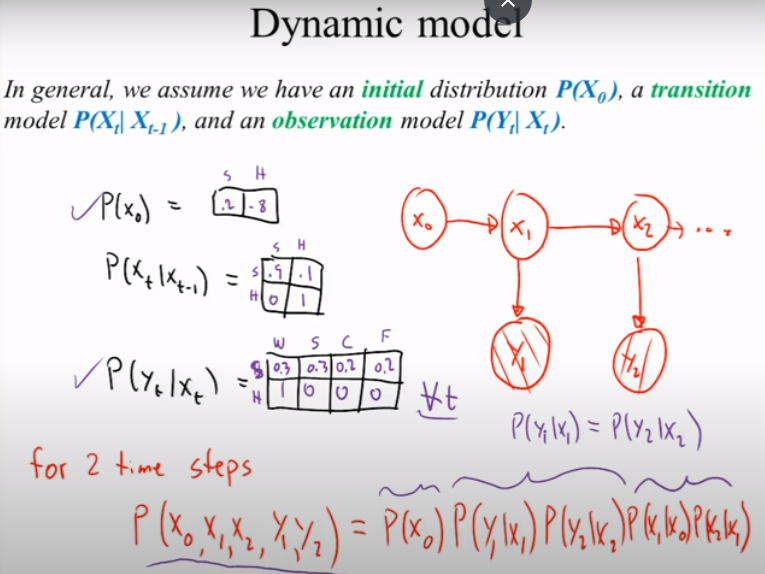 Dynamic model
In general, we assume we have an initial distribution P(X₀), a transition
model P(Xₜ| Xₜ₋₁), and an observation model P(Yₜ| Xₜ).
S H
✓P(x₀) = .2 .8
S H
P(Xₜ|Xₜ₋₁) = S .9 .1
H 0 1
W S C F
✓P(Yₜ|Xₜ) = S 0.3 0.3 0.2 0.2
H 1 0 0 0 ∀t
X₀ X₁ X₂ ...
Y₁ Y₂
P(Y₁|X₁) = P(Y₂|X₂)
for 2 time steps
P(X₀,X₁,X₂,Y₁,Y₂) = P(X₀)P(Y₁|X₁)P(Y₂|X₂)P(X₁|X₀)P(X₂|X₁)